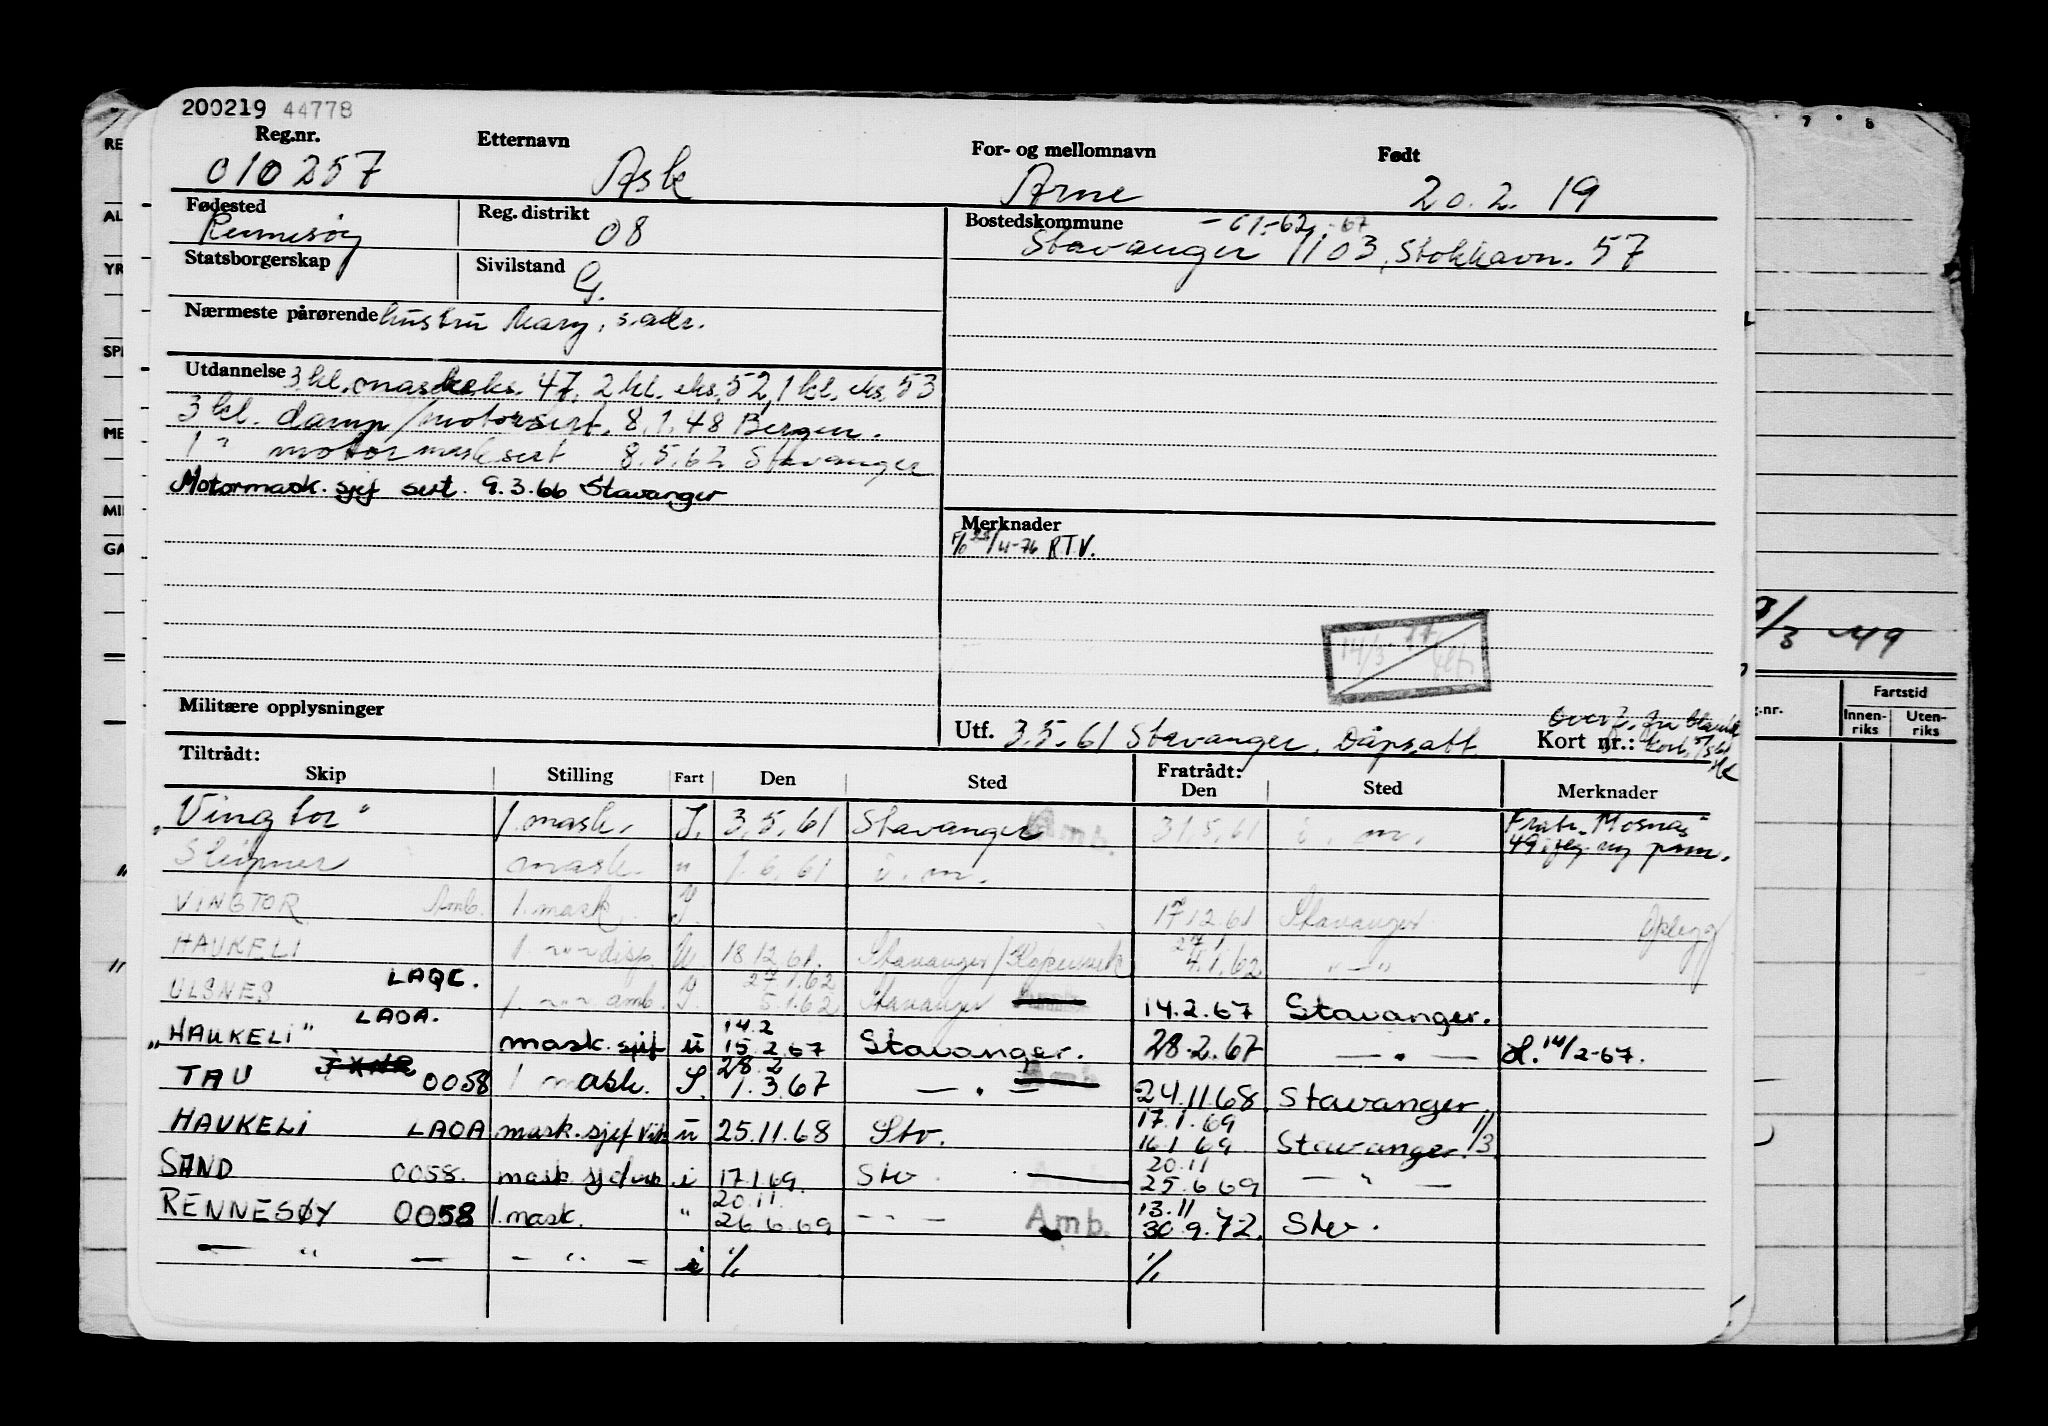 200219 44778
Reg.nr. Etternavn For- og mellomnavn Født
010257 Ask Arne 20.2.19
Fødested Reg. distrikt Bostedskommune
Rennesøy 08 -61-62-67
Stavanger 1103, Stokkavn. 57
Statsborgerskap Sivilstand
G.
Nærmeste pårørende hustru Mary, s.adr.
Utdannelse 3 kl. maskeks. 47, 2 kl. eks. 52, 1 kl. eks. 53
3 kl. damp/motorsert. 8.1.48 Bergen.
1 " motormask sert 8.5.62 Stavanger
Motormask. sjef sert. 9.3.66 Stavanger
Merknader
RTV.
14/3
Militære opplysninger
Utf. 3.5.61 Stavanger, Dåpsatt
Kort nr.:
Tiltrådt: Fratrådt:
Skip Stilling Fart Den Sted Den Sted Merknader
"Vingtor" 1. mask. I. 3.5.61 Stavanger Amb. 31.5.61 i. m. Fratr. "Mosnas"
Sleipner mask. " 1.6.61 i. m. 49
VINGTOR Amb. 1. mask. I. 17.12.61 Stavanger Opplegg
HAUKELI 18.12.61. Stavanger/Kopervik 4.1.62 — " —
27.1.62
ULSNES LAQC. amb. I. 5.1.62 Stavanger 14.2.67 Stavanger.
14.2
"HAUKELI" LAOA. mask. sjef u 15.2.67 Stavanger. 28.2.67 — " — 14/2-67.
28.2
TAU 0058 1 mask. I. 1.3.67 — " — Amb 24.11.68 Stavanger
17.1.69
HAUKELI LAOA mask. sjef vik u 25.11.68 Stv. 16.1 69 Stavanger. 1/3.
20.11
SAND 0058. mask. sjef vik i 17.1.69. Stv. 25.6 69 — " —
20.11. 13.11
RENNESØY 0058 1. mask. " 26.6.69 — " — Amb. 30.9.72. Stv.
— " — — — " — i 1/1 1/1
RE
AL
YR
SP
ME
MI
GA
7 8
9/3 -49
Fartstid
g.nr. Innen-riks Uten-riks